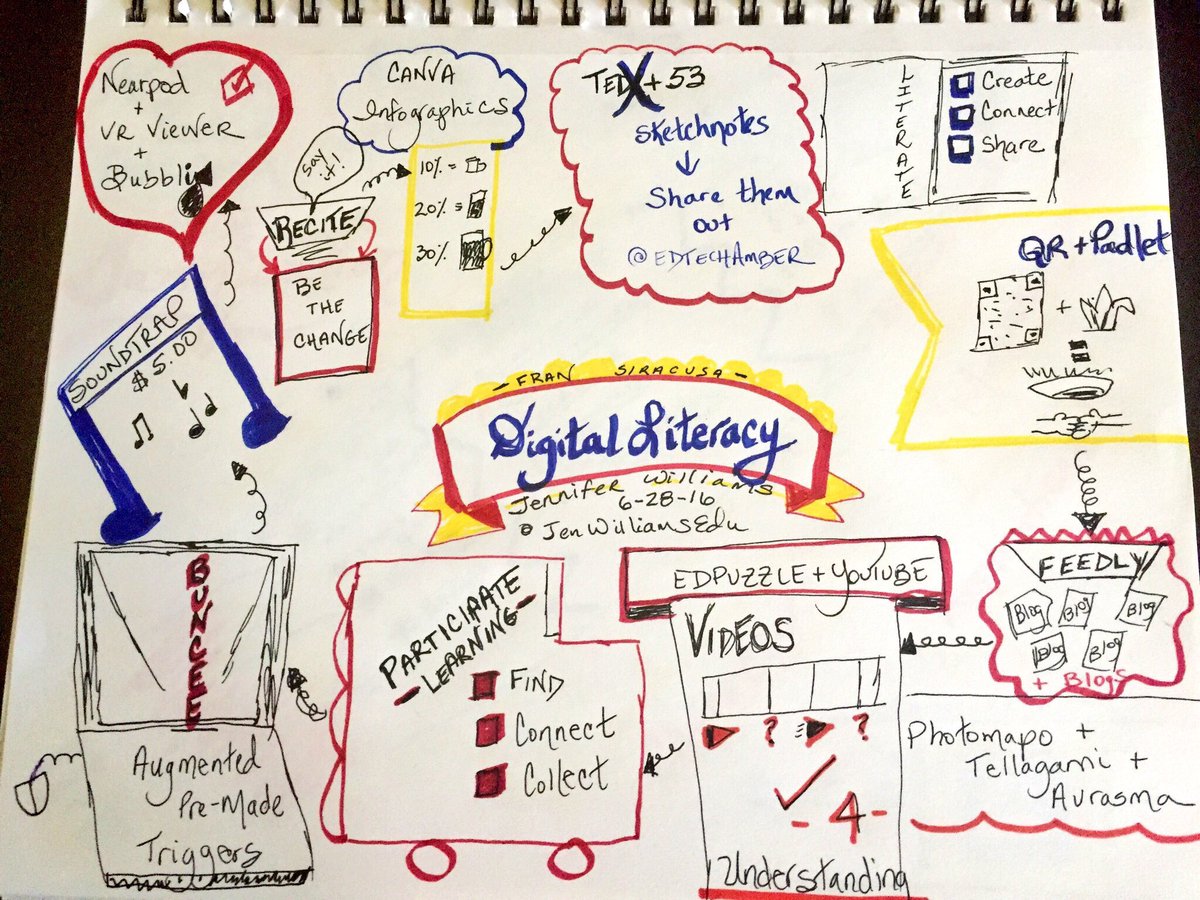 Nearpod
+
VR Viewer
+
Bubbli
Say it!
RECITE
BE
THE
CHANGE
CANVA
Infographics
10% =
20% =
30%
TEDX + 53
Sketchnotes
Share them
out
@EDTECHAMBER
LITERATE
Create
Connect
Share
QR + Padlet
+
=
SOUNDTRAP
$5.00
- FRAN SIRACUSA -
Digital Literacy
Jennifer Williams
6-28-16
@JenWilliamsEdu
FEEDLY
Blog Blog Blog
Blog Blog
+ Blogs
Photomapo +
Tellagami +
Aurasma
EDPUZZLE + YouTUBE
VIDEOS
? ?
- 4 -
Understanding
PARTICIPATE
- LEARNING -
FIND
Connect
Collect
BUNCEE
Augmented
Pre-Made
Triggers